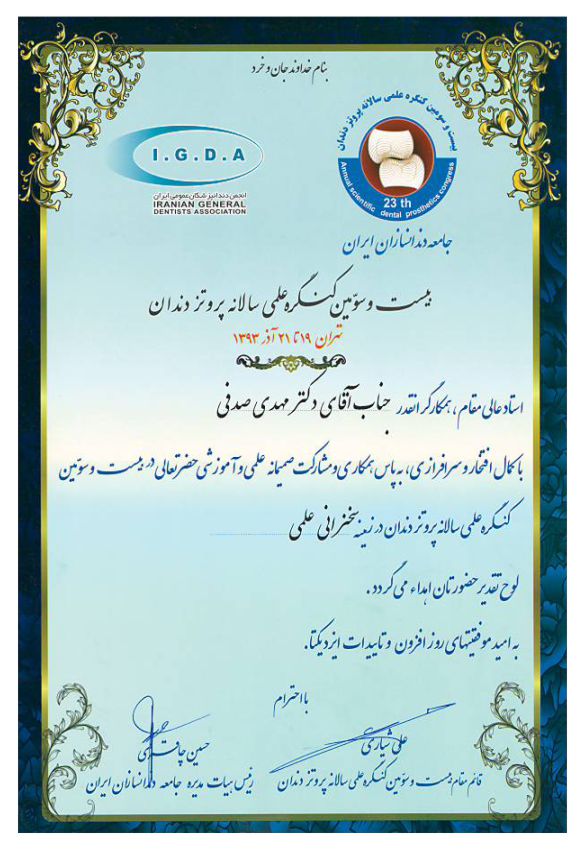 بنام خداوند جان و خرد
بیست و سومین کنگره علمی سالانه پروتز دندان
Annual scientific dental prosthetics congress
23 th
I.G.D.A
انجمن دندانپزشکان عمومی ایران
IRANIAN GENERAL
DENTISTS ASSOCIATION
جامعه دندانسازان ایران
بیست و سوّمین کنگره علمی سالانه پروتز دندان
تهران ۱۹ تا ۲۱ آذر ۱۳۹۳
استاد عالی مقام، همکار گرانقدر جناب آقای دکتر مهدی صدفی
با کمال افتخار و سرافرازی، به پاس همکاری و مشارکت صمیمانه علمی و آموزشی حضرتعالی در بیست و سوّمین
کنگره علمی سالانه پروتز دندان در زمینه سخنرانی علمی
لوح تقدیر حضورتان اهداء می گردد.
به امید موفقیتهای روز افزون و تاییدات ایزد یکتا.
با احترام
علی شیاری
قائم مقام بیست و سوّمین کنگره علمی سالانه پروتز دندان
حسین
رئیس هیات مدیره جامعه دندانسازان ایران